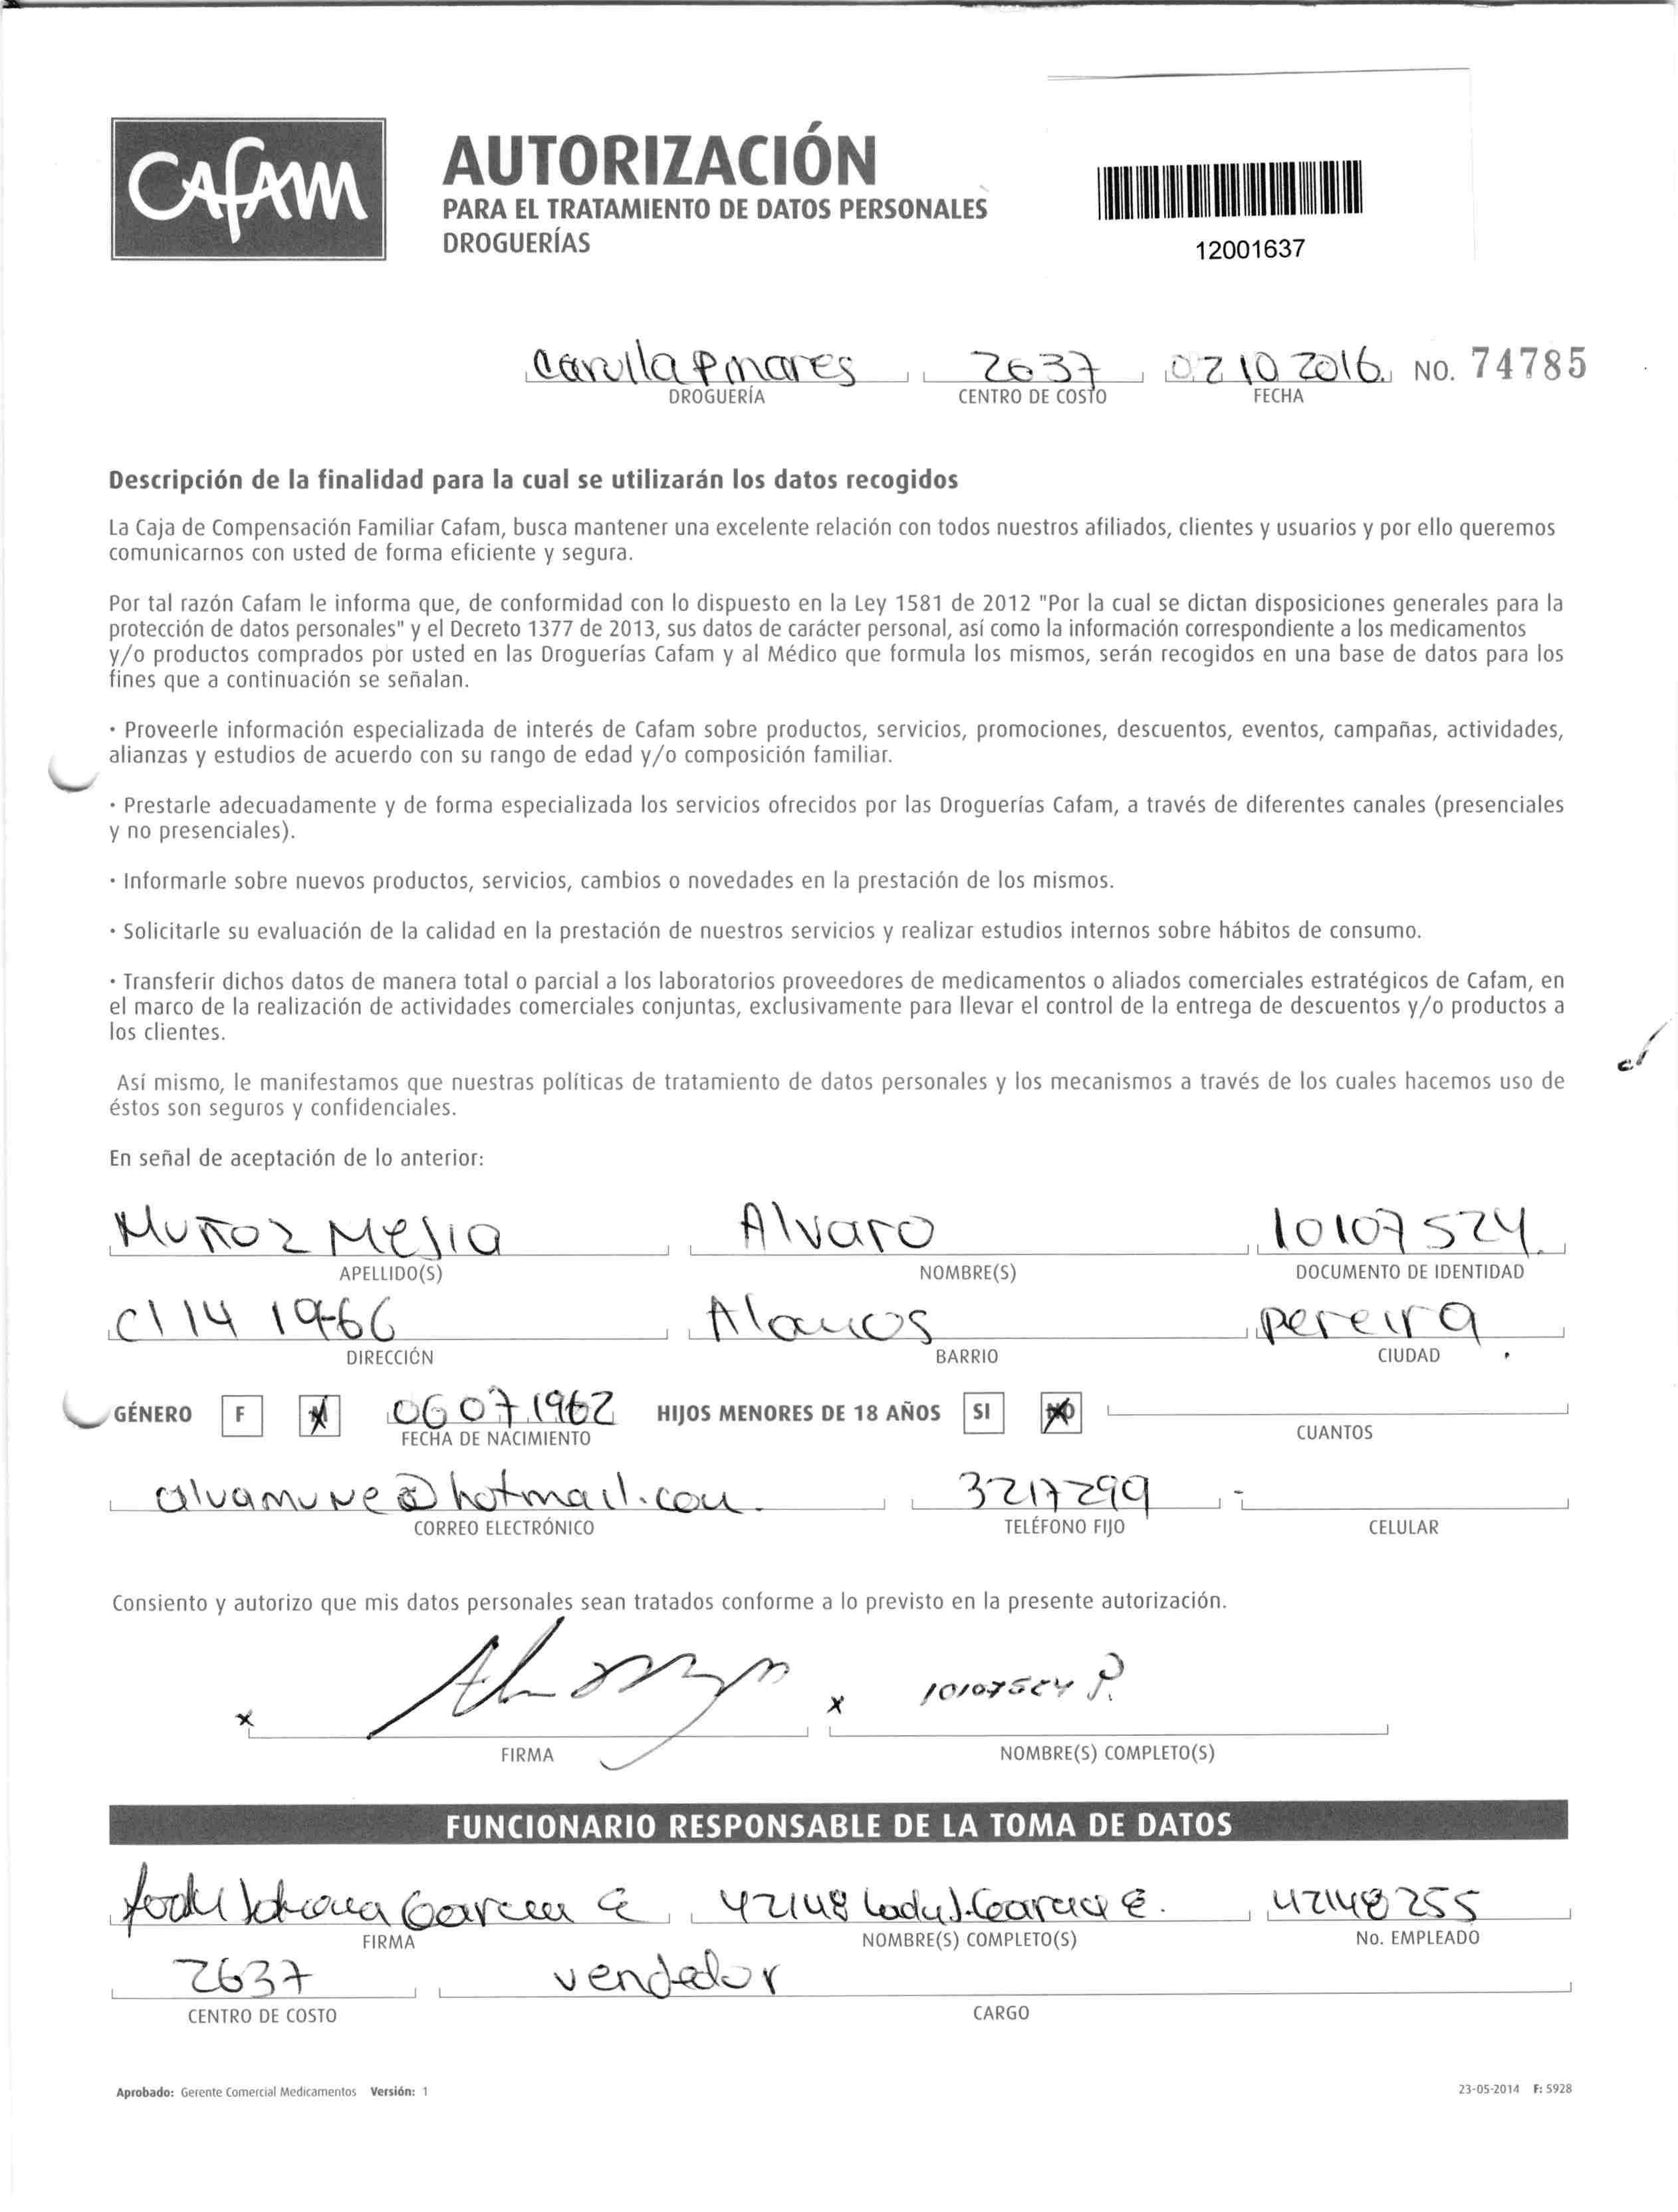 CAFAM
AUTORIZACIÓN
PARA EL TRATAMIENTO DE DATOS PERSONALES
DROGUERÍAS
12001637
Carulla Pinares 2637 02 10 2016 NO. 74785
DROGUERÍA CENTRO DE COSTO FECHA
Descripción de la finalidad para la cual se utilizarán los datos recogidos
La Caja de Compensación Familiar Cafam, busca mantener una excelente relación con todos nuestros afiliados, clientes y usuarios y por ello queremos
comunicarnos con usted de forma eficiente y segura.
Por tal razón Cafam le informa que, de conformidad con lo dispuesto en la Ley 1581 de 2012 "Por la cual se dictan disposiciones generales para la
protección de datos personales" y el Decreto 1377 de 2013, sus datos de carácter personal, así como la información correspondiente a los medicamentos
y/o productos comprados por usted en las Droguerías Cafam y al Médico que formula los mismos, serán recogidos en una base de datos para los
fines que a continuación se señalan.
· Proveerle información especializada de interés de Cafam sobre productos, servicios, promociones, descuentos, eventos, campañas, actividades,
alianzas y estudios de acuerdo con su rango de edad y/o composición familiar.
· Prestarle adecuadamente y de forma especializada los servicios ofrecidos por las Droguerías Cafam, a través de diferentes canales (presenciales
y no presenciales).
· Informarle sobre nuevos productos, servicios, cambios o novedades en la prestación de los mismos.
· Solicitarle su evaluación de la calidad en la prestación de nuestros servicios y realizar estudios internos sobre hábitos de consumo.
· Transferir dichos datos de manera total o parcial a los laboratorios proveedores de medicamentos o aliados comerciales estratégicos de Cafam, en
el marco de la realización de actividades comerciales conjuntas, exclusivamente para llevar el control de la entrega de descuentos y/o productos a
los clientes.
Así mismo, le manifestamos que nuestras políticas de tratamiento de datos personales y los mecanismos a través de los cuales hacemos uso de
éstos son seguros y confidenciales.
En señal de aceptación de lo anterior:
Muñoz Mejia Alvaro 10107524
APELLIDO(S) NOMBRE(S) DOCUMENTO DE IDENTIDAD
Cl 14 19-66 Alamos pereira
DIRECCIÓN BARRIO CIUDAD
GÉNERO F M 06 07 1962 HIJOS MENORES DE 18 AÑOS SI NO
FECHA DE NACIMIENTO CUANTOS
alvamune@hotmail.com 3217299 -
CORREO ELECTRÓNICO TELÉFONO FIJO CELULAR
Consiento y autorizo que mis datos personales sean tratados conforme a lo previsto en la presente autorización.
x x 10107524 P.
FIRMA NOMBRE(S) COMPLETO(S)
FUNCIONARIO RESPONSABLE DE LA TOMA DE DATOS
Garcia 42148 Lady J. Garcia 42148255
FIRMA NOMBRE(S) COMPLETO(S) No. EMPLEADO
2637 vendedor
CENTRO DE COSTO CARGO
Aprobado: Gerente Comercial Medicamentos Versión: 1 23-05-2014 F: 5928